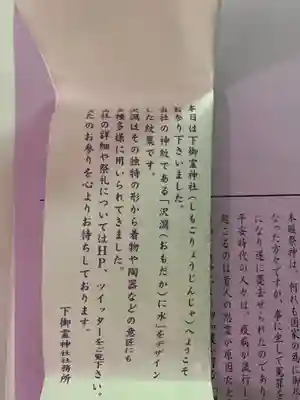 本日は下御霊神社(しもごりょうじんじゃ)へようこそ
お参り下さいました。
当社の神紋である「沢瀉(おもだか)に水」をデザイン
した紋菓です。
沢瀉はその独特の形から着物や陶器などの意匠にも
多種多様に用いられてきました。
社の詳細や祭礼についてはHP、ツイッターをご覧下さい。
たのお参りを心よりお待ちしております。
下御霊神社社務所
本殿祭神は、何れも国家の為に御尽
なった方々ですが、事に坐して冤罪を
になり遂に薨去せられたのであり
平安時代の人々は、疫病が流行し
起こるのは昔人の怨霊が原因だと